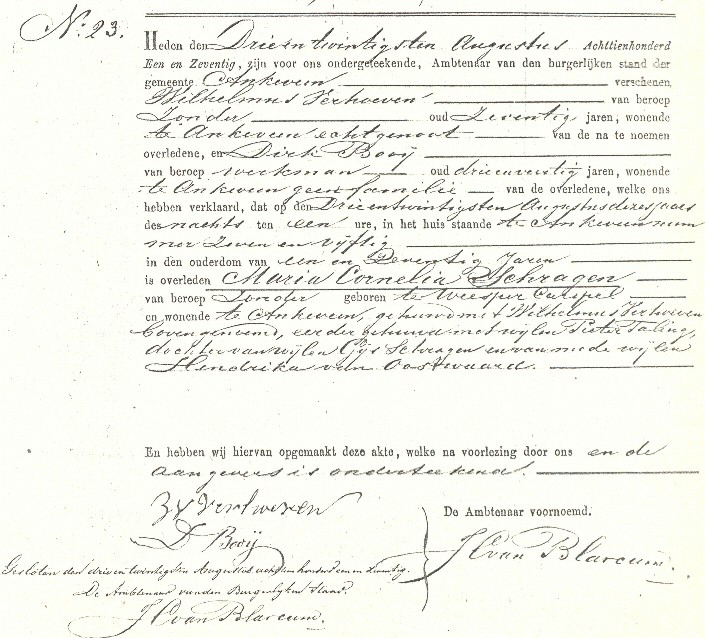 No. 23.
Heden den Drieentwintigsten Augustus Achttienhonderd
Een en Zeventig, zijn voor ons ondergeteekende, Ambtenaar van den burgerlijken stand der
gemeente Ankeveen verschenen,
Wilhelmus Verhoeven van beroep
Zonder oud Zeventig jaren, wonende
te Ankeveen echtgenoot van de na te noemen
overledene, en Dirk Booij
van beroep werkman oud drieenveertig jaren, wonende
te Ankeveen geen familie van de overledene, welke ons
hebben verklaard, dat op den Drieentwintigsten Augustus dezes jaars
des nachts ten een ure, in het huis staande te Ankeveen num
mer Zeven en vijftig
in den ouderdom van een en Zeventig Jaren
is overleden Maria Cornelia Schragen
van beroep Zonder geboren te Weesper Carspel
en wonende te Ankeveen, gehuwd met Wilhelmus Verhoeven
bovengenoemd, eerder gehuwd met wijlen Pieter Taling,
dochter van wijlen Gijs Schragen en van mede wijlen
Hendrika van Oostwaard.
En hebben wij hiervan opgemaakt deze akte, welke na voorlezing door ons en de
aangevers is onderteekend.
Verhoeven
D Booij
De Ambtenaar voornoemd.
J C van Blarcum.
Gesloten den drie en twintigsten Augustus achttien honderd een en zeventig.
De Ambtenaar van den Burgerlijken Stand.
J C van Blarcum.